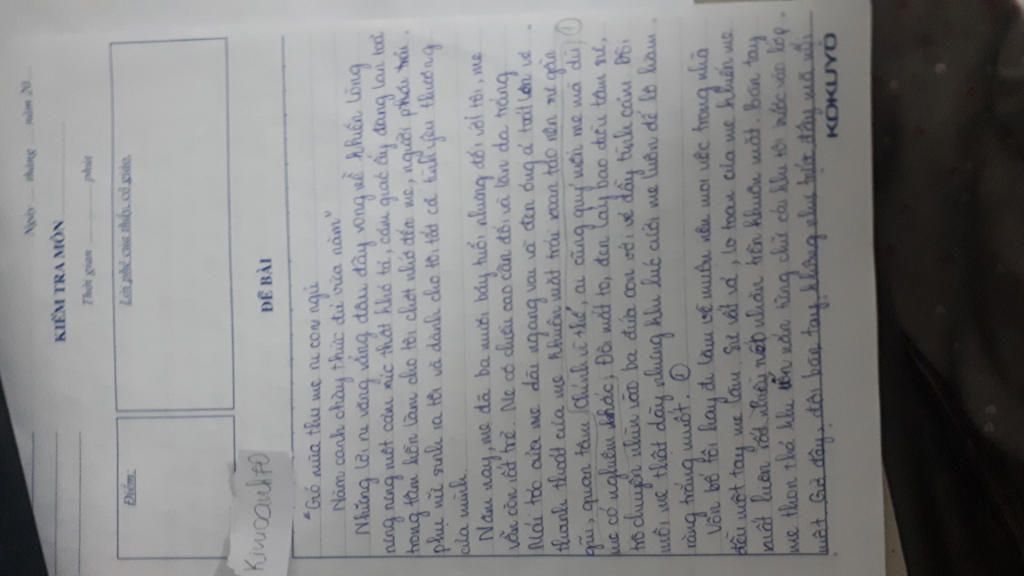 Ngày ..... tháng ..... năm 20.....
KIỂM TRA MÔN ....................
Thời gian ............... phút
Điểm:
Lời phê của thầy, cô giáo.
Kimoanh70
ĐỀ BÀI
"Gió mùa thu mẹ ru con ngủ
Năm canh chày thức đủ vừa năm"
Những lời ru văng vẳng đâu đây vọng về khiến lòng
nặng một cảm xúc thật khó tả, cảm giác ấy đang lan toả
trong tâm hồn làm cho tôi chợt nhớ đến mẹ, người phụ
phụ nữ sinh ra tôi và dành cho tôi tất cả tình yêu thương
của mình.
Năm nay, mẹ đã ba mươi bảy tuổi nhưng đối với tôi, mẹ
vẫn còn rất trẻ. Mẹ có chiều cao cân đối và làn da trắng
Mái tóc của mẹ dài ngang vai và đen óng ả trông
thanh thoát của mẹ. Khuôn mặt trái xoan tạo nên sự gần
gũi, quan tâm. Chính vì thế, ai cũng quý mến mẹ mặc dù
mẹ có nghiêm khắc. Đôi mắt to, đen láy bao đời tâm sự,
trò chuyện nhìn vào ba đứa con với vẻ đầy tình cảm. Đôi
môi mẹ thật đầy những khi lúc cười mẹ luôn để lộ hàm
răng trắng muốt.
Vốn bố tôi hay đi làm về muộn nên mọi việc trong nhà
đều một tay mẹ làm. Sự vất vả, lo toan của mẹ khiến mẹ
luôn nhiều nếp nhăn trên khuôn mặt. Bàn tay
mẹ thon thả khi nắn từng chữ cái khi tôi mới vào lớp
một. Giờ đây, đôi bàn tay không như trước đây mà nổi
KOKUYO